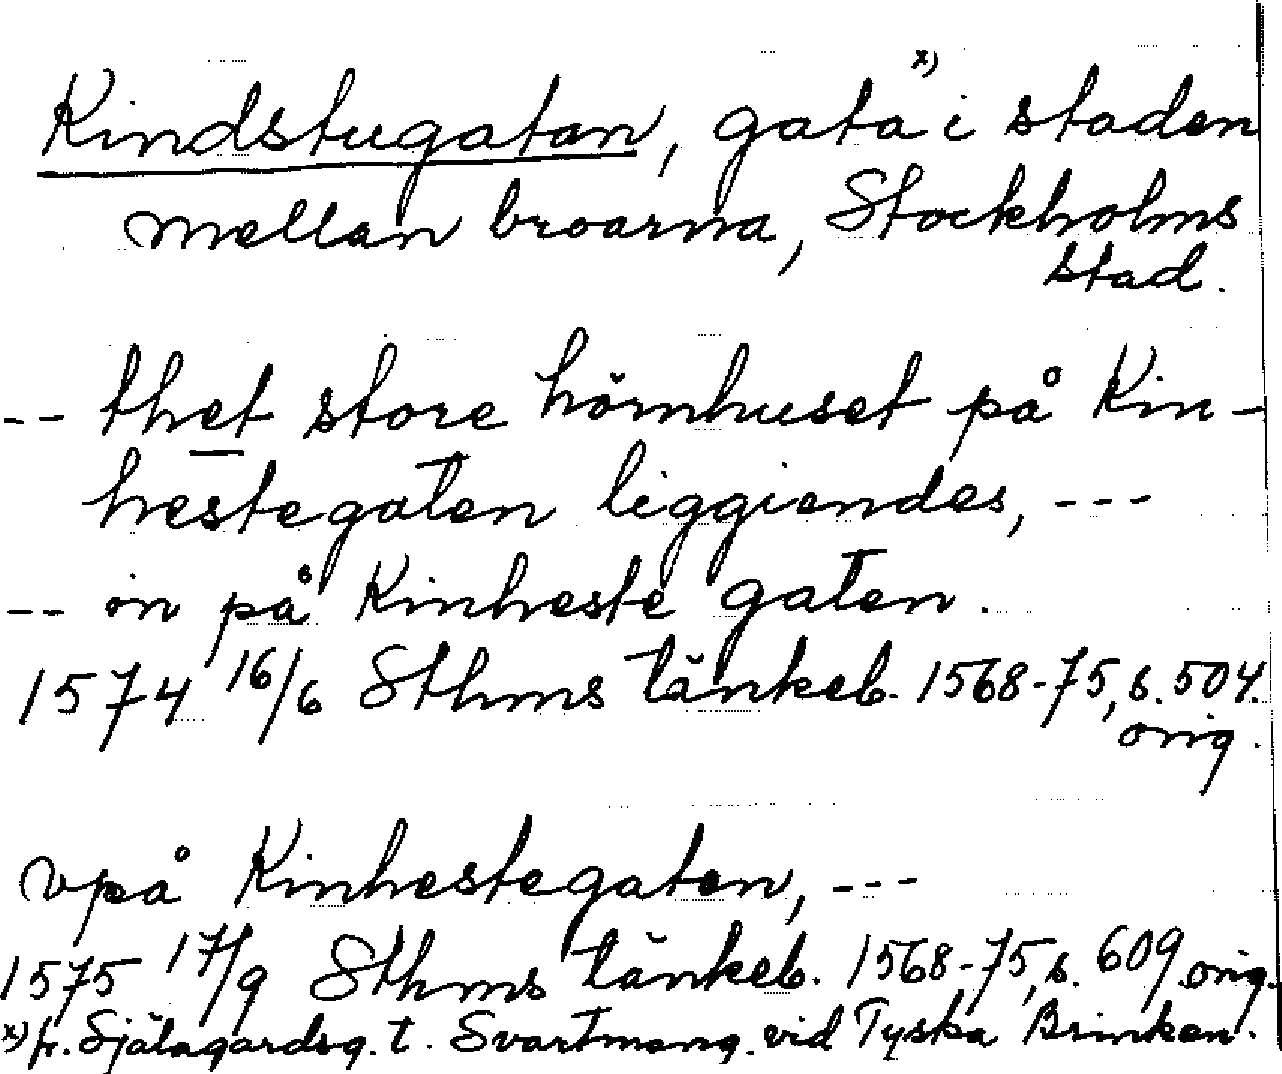 Kindstugatan, gata x) i staden
mellan broarna, Stockholms
stad.
-- thet store hörnhuset på Kin-
hestegaten liggiendes, ---
-- in på Kinheste gaten.
1574 16/6 Sthms tänkeb. 1568-75, s. 504.
orig.
vpå Kinhestegaten, ---
1575 17/9 Sthms tänkeb. 1568-75, s. 609 orig.
x) fr. Själagårdsg. t. Svartmang. vid Tyska Brinken.